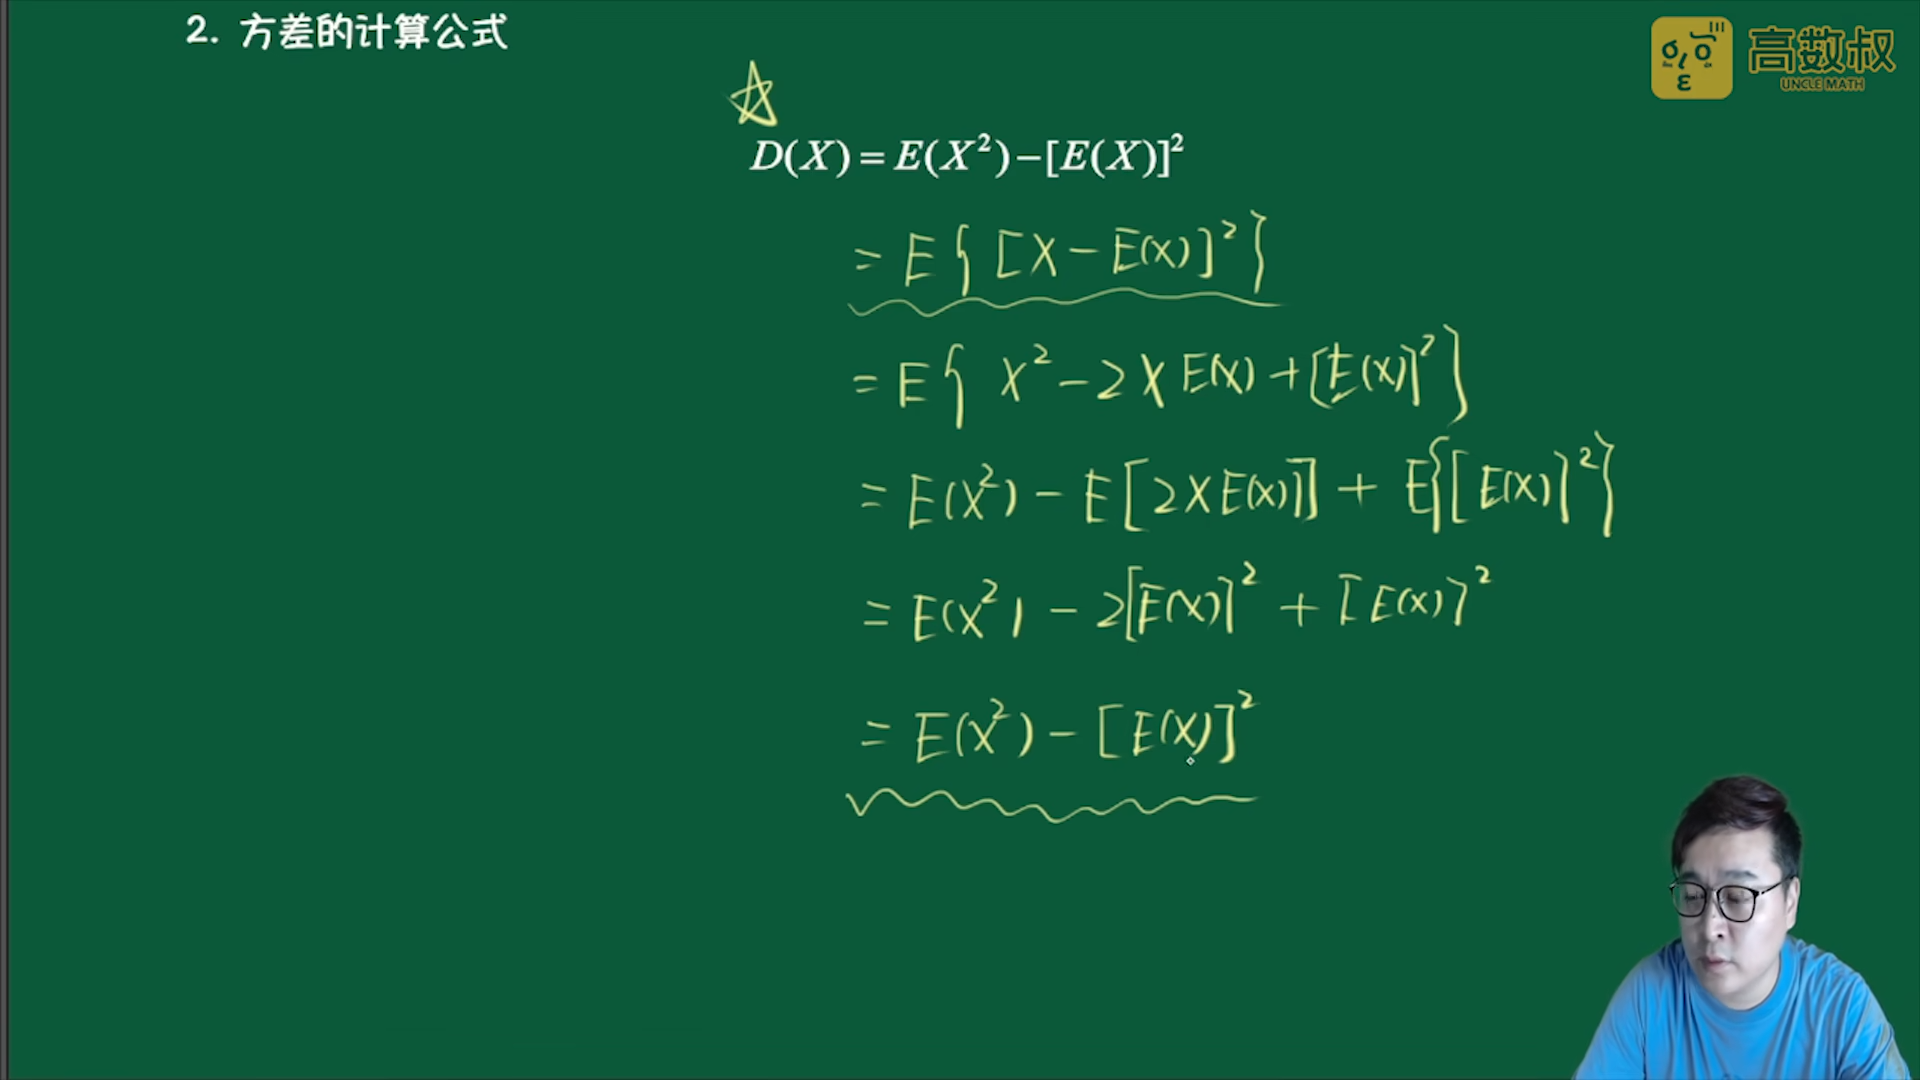 2. 方差的计算公式
高数叔
UNCLE MATH
D(X)=E(X²)-[E(X)]²
= E{[X-E(X)]²}
= E{X²-2XE(X)+[E(X)]²}
= E(X²)-E[2XE(X)]+E{[E(X)]²}
= E(X²)-2[E(X)]²+[E(X)]²
= E(X²)-[E(X)]²